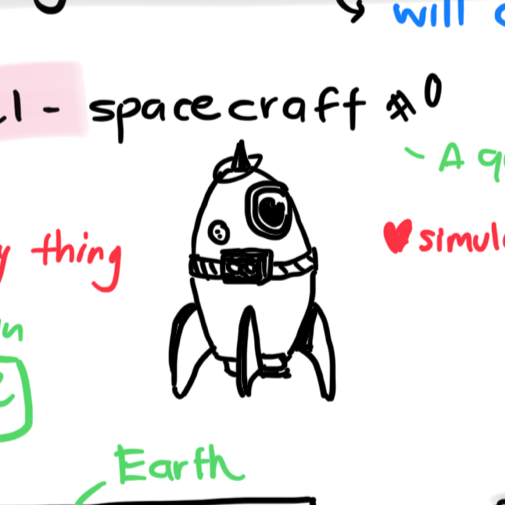 will
- spacecraft #0
- A
thing
♥ simul
Earth